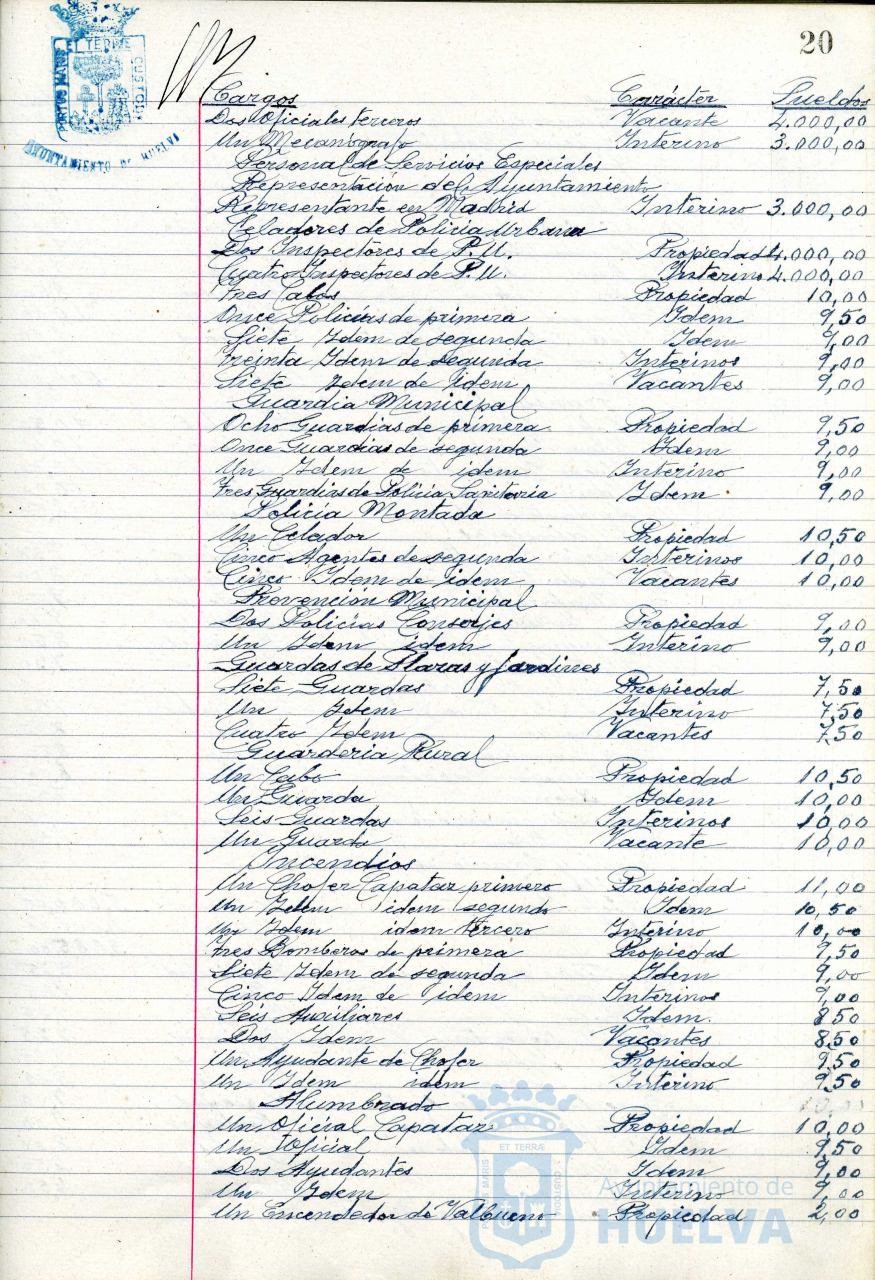 20
PORTUS MARIS ET TERRÆ CUSTODIA
AYUNTAMIENTO DE HUELVA
Cargos Carácter Sueldos
Dos Oficiales terceros Vacante 4.000,00
Un Mecanógrafo Interino 3.000,00
Personal de Servicios Especiales
Representación del Ayuntamiento
Representante en Madrid Interino 3.000,00
Celadores de Policia Urbana
Dos Inspectores de P.U. Propiedad 4.000,00
Cuatro Inspectores de P.U. Interino 4.000,00
Tres Cabos Propiedad 10,00
Once Policías de primera Idem 9,50
Siete Idem de segunda Idem 9,00
Treinta Idem de Segunda Interinos 9,00
Siete Idem de idem Vacantes 9,00
Guardia Municipal
Ocho Guardias de primera Propiedad 9,50
Once Guardias de segunda Idem 9,00
Un Idem de idem Interino 9,00
Tres Guardias de Policía Sanitaria Idem 9,00
Policia Montada
Un Celador Propiedad 10,50
Cinco Agentes de segunda Interinos 10,00
Cinco Idem de idem Vacantes 10,00
Prevención Municipal
Dos Policías Conserjes Propiedad 9,00
Un Idem idem Interino 9,00
Guardas de Plazas y Jardines
Siete Guardas Propiedad 7,50
Un Idem Interino 7,50
Cuatro Idem Vacantes 7,50
Guarderia Rural
Un Cabo Propiedad 10,50
Un Guarda Idem 10,00
Seis Guardas Interinos 10,00
Un Guarda Vacante 10,00
Incendios
Un Chofer Capataz primero Propiedad 11,00
Un Idem idem segundo Idem 10,50
Un Idem idem tercero Interino 10,00
Tres Bomberos de primera Propiedad 9,50
Siete Idem de segunda Idem 9,00
Cinco Idem de idem Interinos 9,00
Seis Auxiliares Idem. 8,50
Dos Idem Vacantes 8,50
Un Ayudante de Chofer Propiedad 9,50
Un Idem idem Interino 9,50
Alumbrado
Un Oficial Capataz Propiedad 10,00
Un Oficial Idem 9,50
Dos Ayudantes Idem 9,00
Un Idem Interino 9,00
Un Encendedor de Valbueno Propiedad 2,00
MARIS ET TERRÆ CUSTODIA
Ayuntamiento de
HUELVA